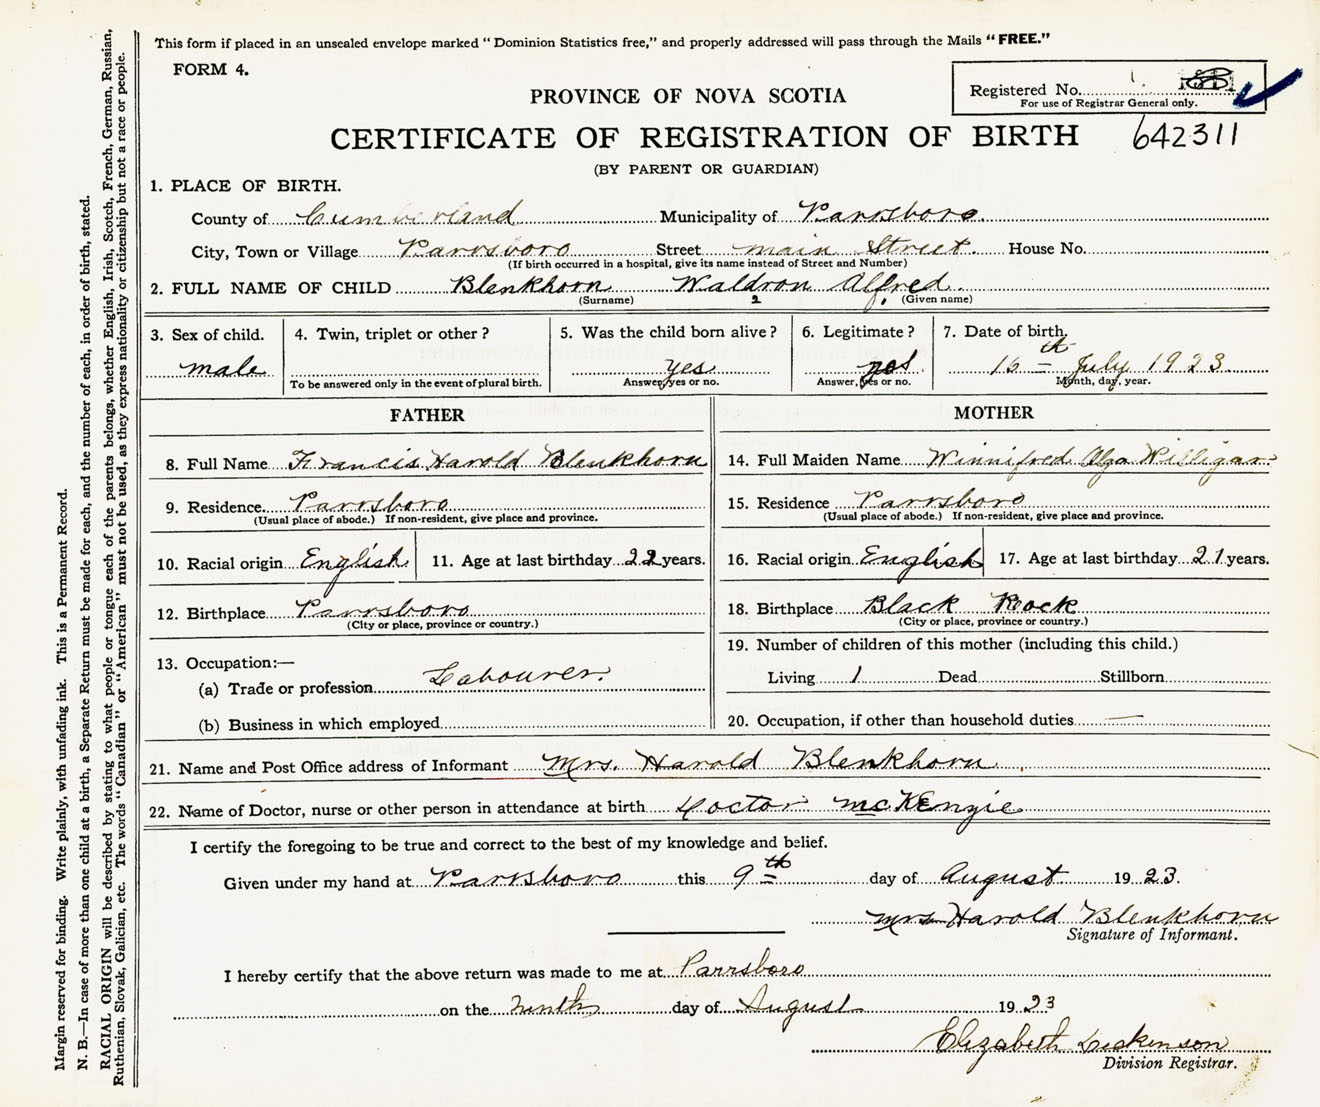 This form if placed in an unsealed envelope marked "Dominion Statistics free," and properly addressed will pass through the Mails "FREE."
FORM 4.
Registered No.
For use of Registrar General only.
PROVINCE OF NOVA SCOTIA
CERTIFICATE OF REGISTRATION OF BIRTH 642311
(BY PARENT OR GUARDIAN)
1. PLACE OF BIRTH.
County of Cumberland Municipality of Parrsboro.
City, Town or Village Parrsboro Street main Street. House No.
(If birth occurred in a hospital, give its name instead of Street and Number)
2. FULL NAME OF CHILD Blenkhorn Waldron Alfred.
(Surname) 2 (Given name)
3. Sex of child. 4. Twin, triplet or other? 5. Was the child born alive? 6. Legitimate? 7. Date of birth.
male yes yes 16th July 1923
To be answered only in the event of plural birth. Answer, yes or no. Answer, yes or no. Month, day, year.
FATHER
8. Full Name Francis Harold Blenkhorn
9. Residence. Parrsboro
(Usual place of abode.) If non-resident, give place and province.
10. Racial origin English 11. Age at last birthday 22 years.
12. Birthplace Parrsboro
(City or place, province or country.)
13. Occupation:—
(a) Trade or profession Labourer.
(b) Business in which employed
MOTHER
14. Full Maiden Name Winnifred Olga Willigar
15. Residence Parrsboro
(Usual place of abode.) If non-resident, give place and province.
16. Racial origin English 17. Age at last birthday 21 years.
18. Birthplace Black Rock
(City or place, province or country.)
19. Number of children of this mother (including this child.)
Living 1 Dead Stillborn
20. Occupation, if other than household duties —
21. Name and Post Office address of Informant Mrs. Harold Blenkhorn
22. Name of Doctor, nurse or other person in attendance at birth Doctor mcKenzie
I certify the foregoing to be true and correct to the best of my knowledge and belief.
Given under my hand at Parrsboro this 9th day of August 1923.
mrs Harold Blenkhorn
Signature of Informant.
I hereby certify that the above return was made to me at Parrsboro
on the ninth day of August 1923
Elizabeth Dickinson
Division Registrar.
Margin reserved for binding. Write plainly, with unfading ink. This is a Permanent Record.
N. B.—In case of more than one child at a birth, a Separate Return must be made for each, and the number of each, in order of birth, stated.
RACIAL ORIGIN will be described by stating to what people or tongue each of the parents belongs, whether English, Irish, Scotch, French, German, Russian,
Ruthenian, Slovak, Galician, etc. The words "Canadian" or "American" must not be used, as they express nationality or citizenship but not a race or people.